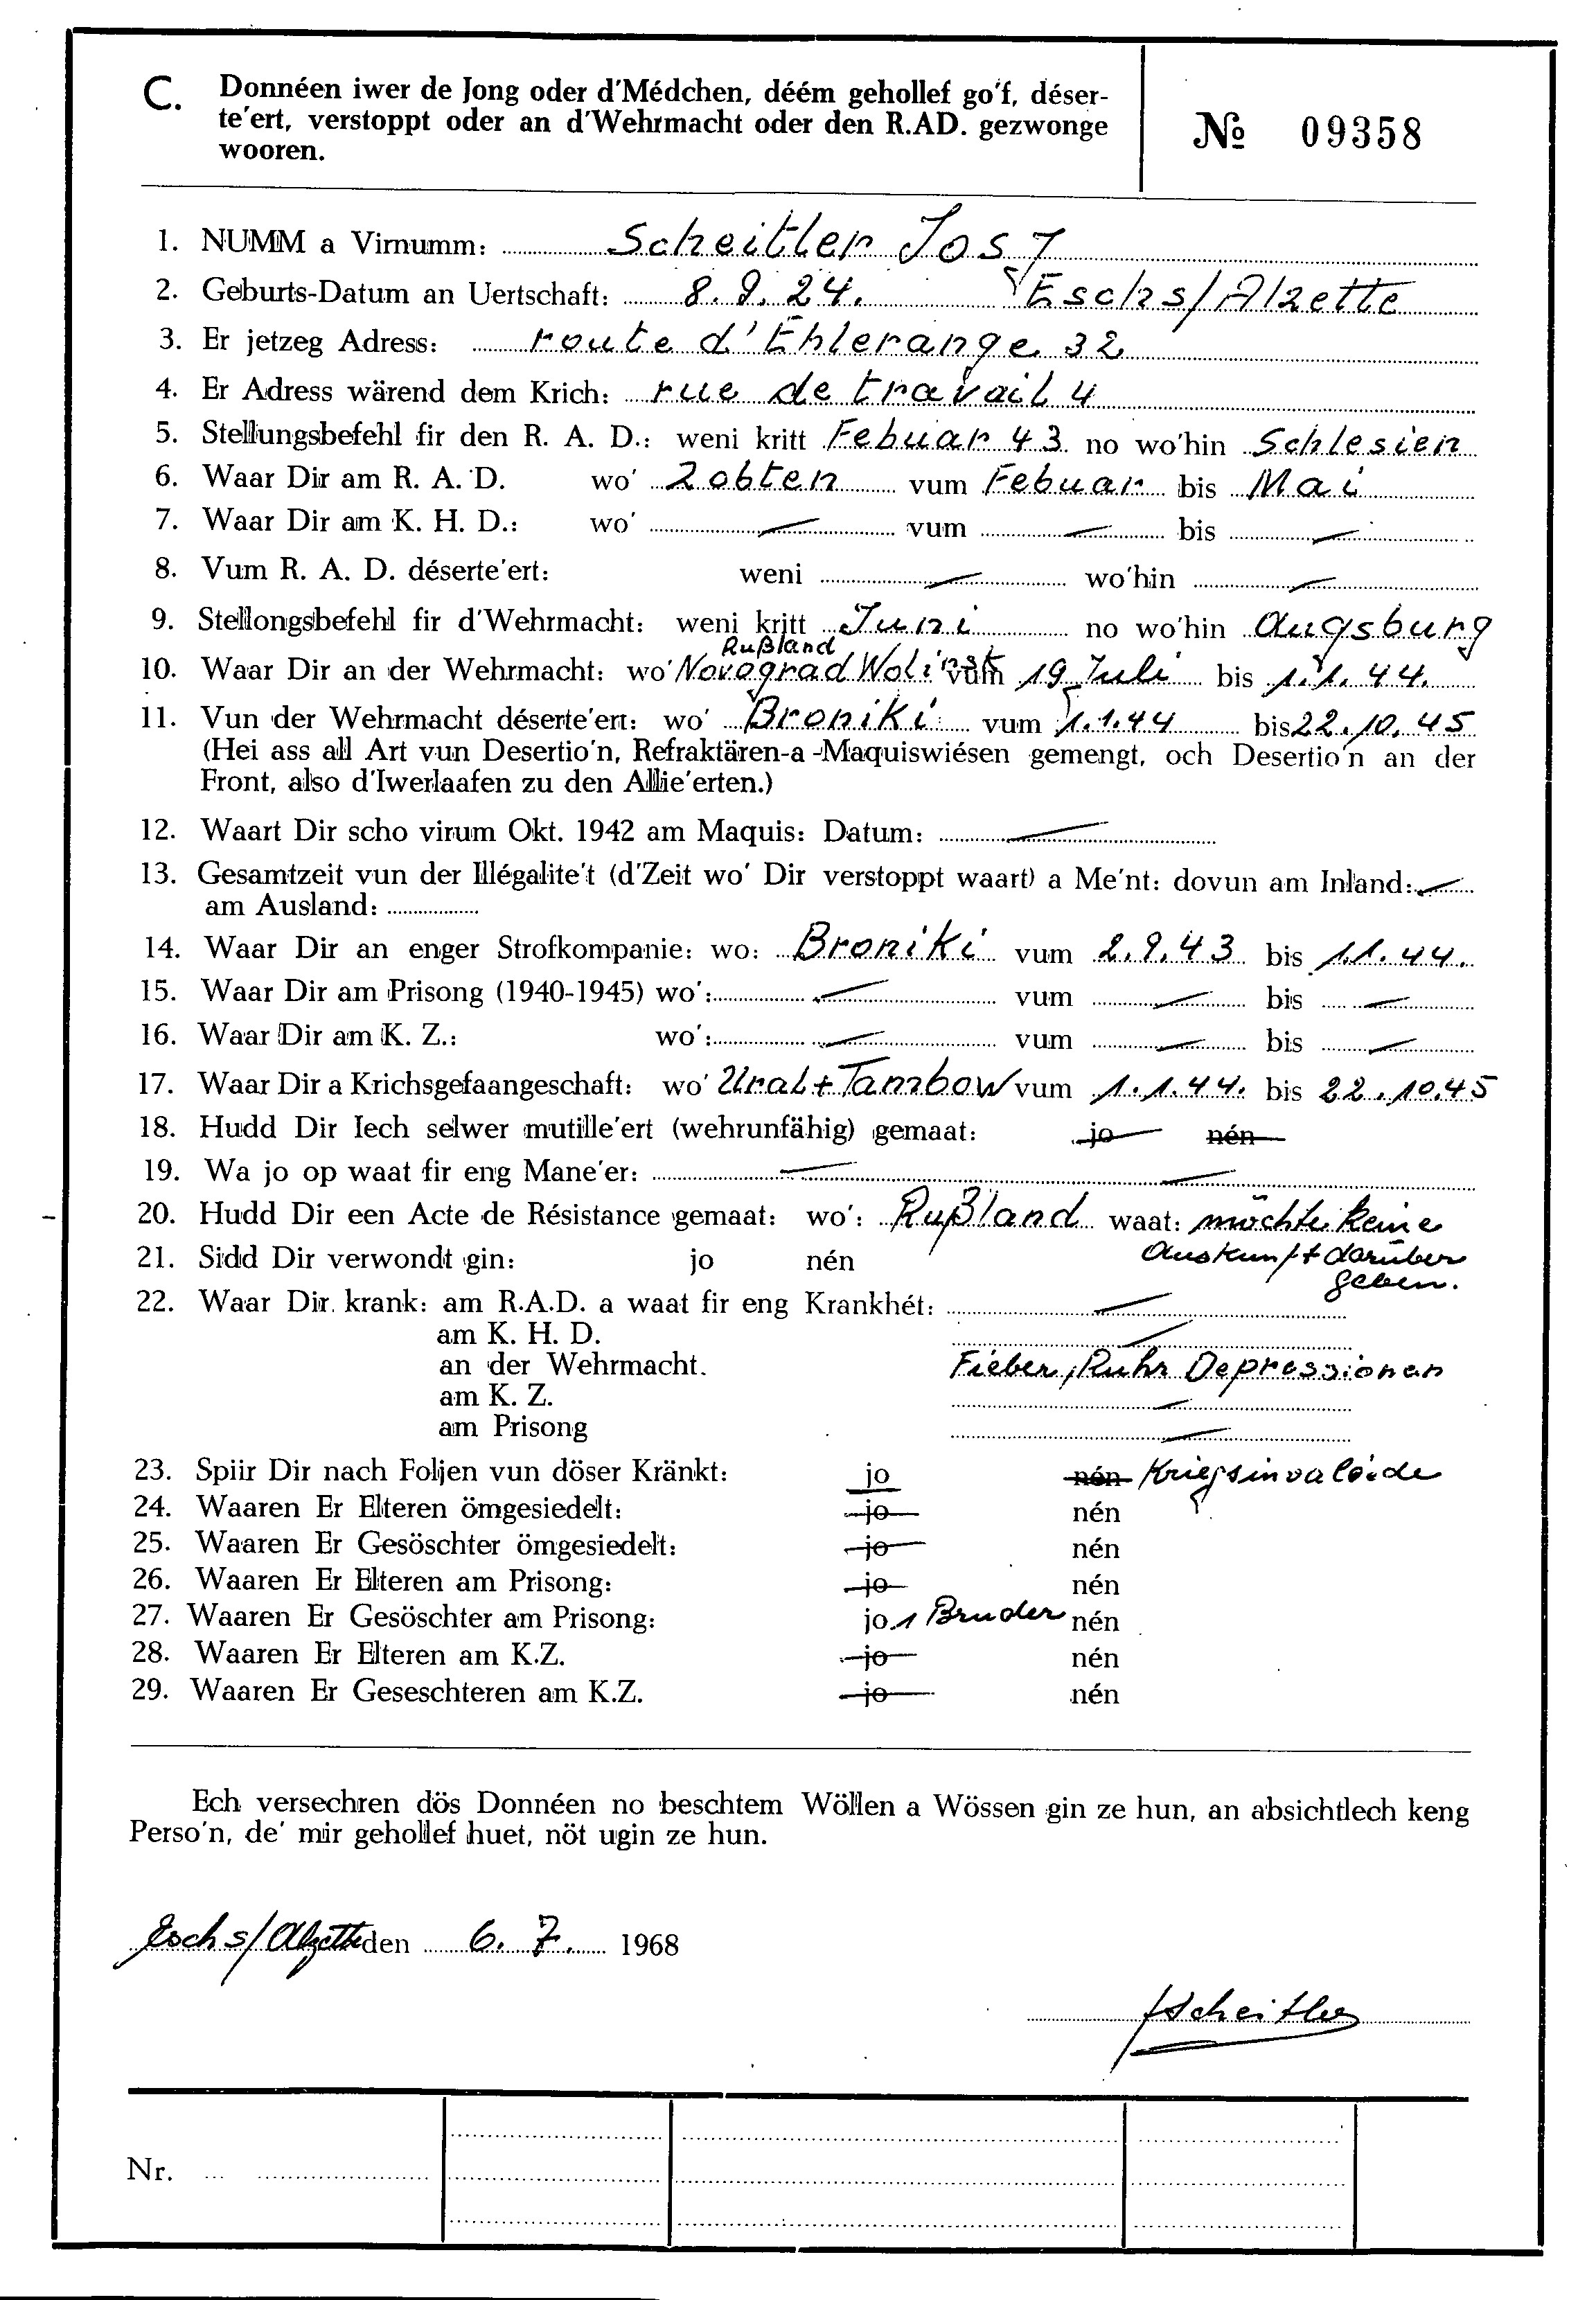 C. Donnéen iwer de Jong oder d'Médchen, déém gehollef go'f, déser-
te'ert, verstoppt oder an d'Wehrmacht oder den R.AD. gezwonge
wooren.
№ 09358
1. NUMM a Virnumm: Scheitler Josy
2. Geburts-Datum an Uertschaft: 8.9.24. Esch s/Alzette
3. Er jetzeg Adress: route d'Ehlerange 32
4. Er Adress wärend dem Krich: rue de travail 4
5. Stellungsbefehl fir den R. A. D.: weni kritt Febuar 43 no wo'hin Schlesien
6. Waar Dir am R. A. D. wo' Zobten vum Febuar bis Mai
7. Waar Dir am K. H. D.: wo' — vum — bis —
8. Vum R. A. D. déserte'ert: weni — wo'hin —
9. Stellongsbefehl fir d'Wehrmacht: weni kritt Juni no wo'hin Augsburg
Rußland
10. Waar Dir an der Wehrmacht: wo' Novograd Wolinsk vum 19 Juli bis 1.1.44.
11. Vun der Wehrmacht déserte'ert: wo' Broniki vum 1.1.44 bis 22.10.45
(Hei ass all Art vun Desertio'n, Refraktären-a-Maquiswiésen gemengt, och Desertio'n an der
Front, also d'Iwerlaafen zu den Allie'erten.)
12. Waart Dir scho virum Okt. 1942 am Maquis: Datum: —
13. Gesamtzeit vun der Illégalite't (d'Zeit wo' Dir verstoppt waart) a Me'nt: dovun am Inland: —
am Ausland:
14. Waar Dir an enger Strofkompanie: wo: Broniki vum 2.9.43 bis 1.1.44.
15. Waar Dir am Prisong (1940-1945) wo': — vum — bis —
16. Waar Dir am K. Z.: wo': — vum — bis —
17. Waar Dir a Krichsgefaangeschaft: wo' Ural + Tambow vum 1.1.44. bis 22.10.45
18. Hudd Dir Iech selwer mutille'ert (wehrunfähig) gemaat: jo nén
19. Wa jo op waat fir eng Mane'er: — —
20. Hudd Dir een Acte de Résistance gemaat: wo': Rußland waat: möchte keine
Auskunft darüber
geben.
21. Sidd Dir verwondt gin: jo nén
22. Waar Dir krank: am R.A.D. a waat fir eng Krankhét: —
am K. H. D. —
an der Wehrmacht. Fieber, Ruhr Depressionen
am K. Z. —
am Prisong —
23. Spiir Dir nach Foljen vun döser Kränkt: jo nén Kriegsinvalide
24. Waaren Er Elteren ömgesiedelt: jo nén
25. Waaren Er Gesöschter ömgesiedelt: jo nén
26. Waaren Er Elteren am Prisong: jo nén
27. Waaren Er Gesöschter am Prisong: jo 1 Bruder nén
28. Waaren Er Elteren am K.Z. jo nén
29. Waaren Er Geseschteren am K.Z. jo nén
Ech versechren dös Donnéen no beschtem Wöllen a Wössen gin ze hun, an absichtlech keng
Perso'n, de' mir gehollef huet, nöt ugin ze hun.
Esch s/Alzette den 6. 7. 1968
JScheitler
Nr.